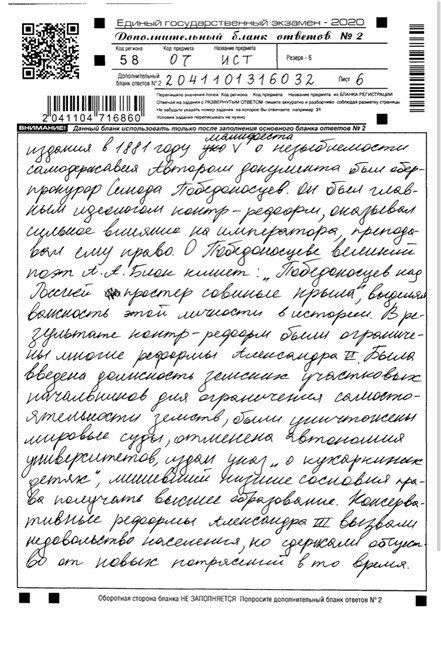 Единый государственный экзамен - 2020
Дополнительный бланк ответов № 2
Код региона Код предмета Название предмета
58 07 ИСТ Резерв - 6
Дополнительный бланк ответов № 2 2041101316032 Лист 6
2 041104 716860
Перепишите значения полей Код региона, Код предмета, Название предмета из БЛАНКА РЕГИСТРАЦИИ
Отвечая на задания с РАЗВЕРНУТЫМ ОТВЕТОМ пишите аккуратно и разборчиво соблюдая разметку страницы
Не забудьте указать номер задания на которое Вы отвечаете например 31
Условия задания переписывать не нужно
ВНИМАНИЕ! Данный бланк использовать только после заполнения основного бланка ответов № 2
манифеста
издания в 1881 году V о незыблемости
самодержавия Автором документа был обер-
прокурор Синода Победоносцев. Он был глав-
ным идеологом контр-реформ, оказывал
сильное влияние на императора, препода-
вал ему право. О Победоносцеве великий
поэт А. А. Блок пишет: „Победоносцев над
Россией простер совиные крыла", выделяя
важность этой личности в истории. В ре-
зультате контр-реформ были ограниче-
ны многие реформы Александра II. Была
введена должность земских участковых
начальников для ограничения самосто-
ятельности земств, были уничтожены
мировые суды, отменена автономия
университетов, издан указ „о кухаркиных
детях", лишивший низшие сословия пра-
ва получать высшее образование. Консерва-
тивные реформы Александра III вызвали
недовольство населения, но сдержали общест-
во от новых потрясений в то время.
Оборотная сторона бланка НЕ ЗАПОЛНЯЕТСЯ Попросите дополнительный бланк ответов № 2